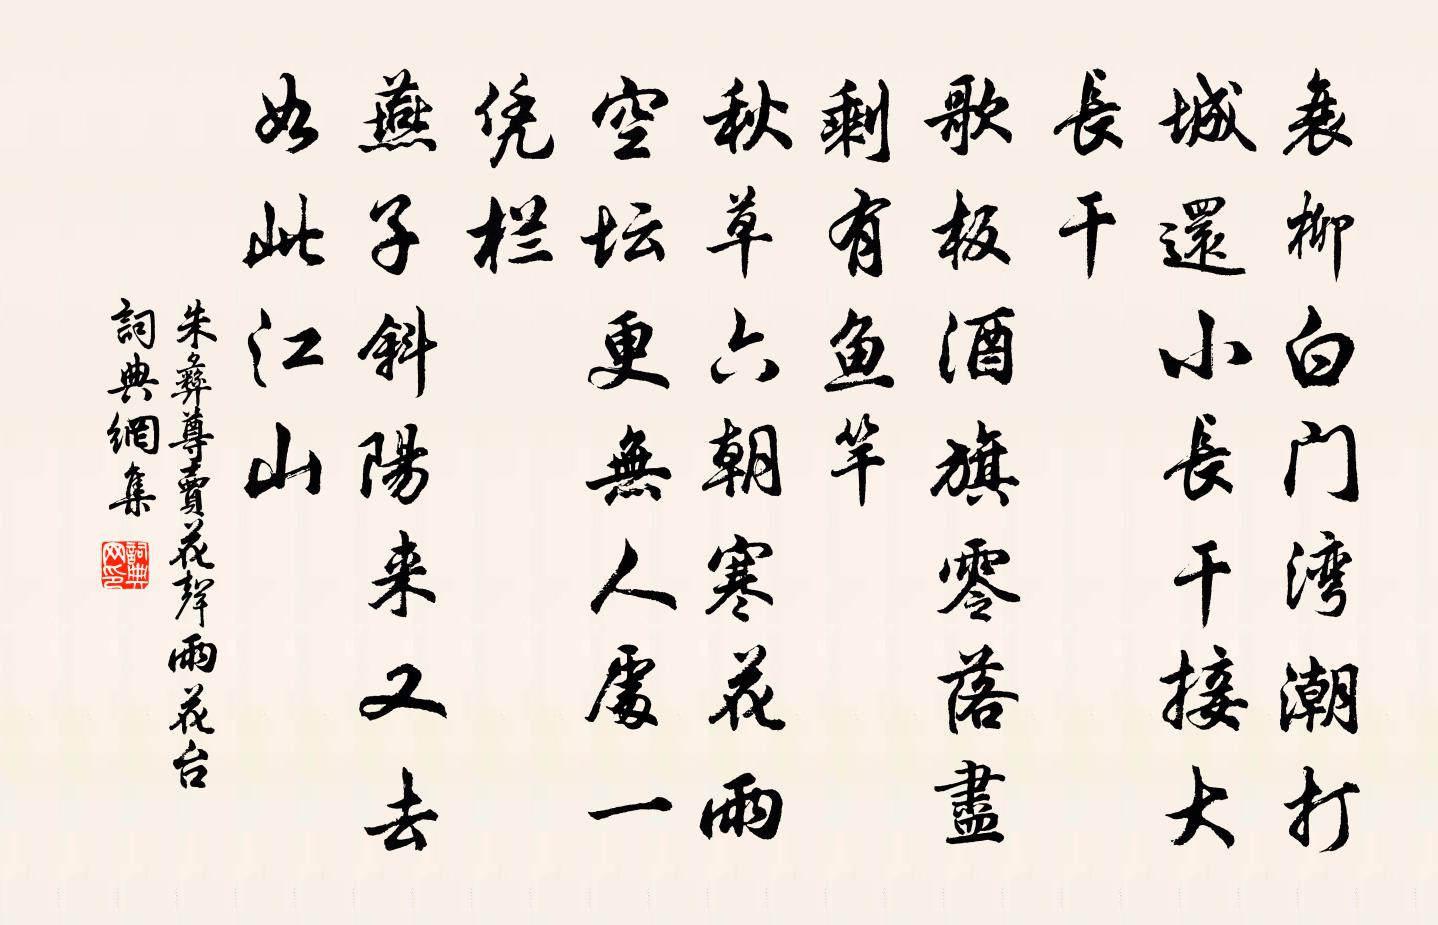 衰柳白门湾潮打
城還小長干接大
長干
歌板酒旗零落盡
剩有鱼竿
秋草六朝寒花雨
空坛更無人處一
凭栏
燕子斜陽来又去
如此江山
朱彝尊賣花聲雨花台
詞典網集
詞典网印